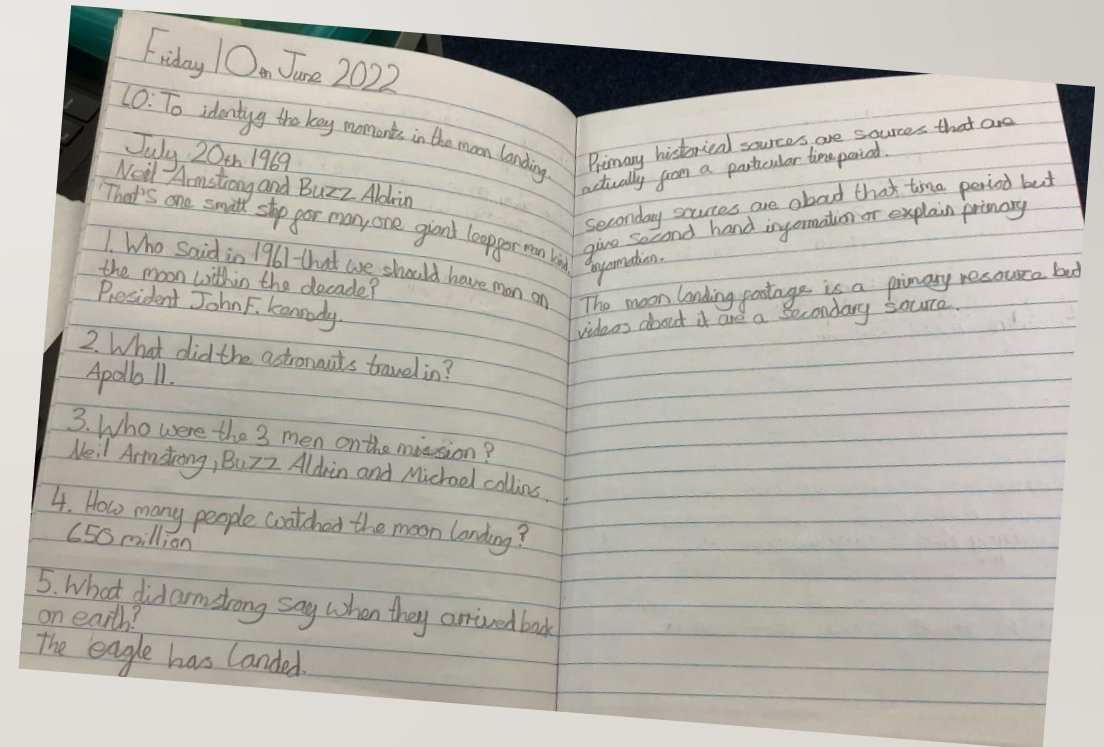 Friday 10th June 2022
LO: To identyg the key moments in the moon landing.
July 20th 1969
Neil Armstrong and Buzz Aldrin
"That's one small step for man, one giant leap for man kind.
1. Who said in 1961 that we should have men on
the moon within the decade?
President John F. kennedy.
2. What did the astronauts travel in?
Apollo 11.
3. Who were the 3 men on the mission?
Neil Armstrong, Buzz Aldrin and Michael collins.
4. How many people watched the moon landing?
650 million
5. What did armstrong say when they arrived back
on earth?
The eagle has landed.
Primary historical sources are sources that are
actually from a particular time period.
Secondary sources are about that time period but
give second hand information or explain primary
information.
The moon landing footage is a primary resource but
videos about it are a secondary source.